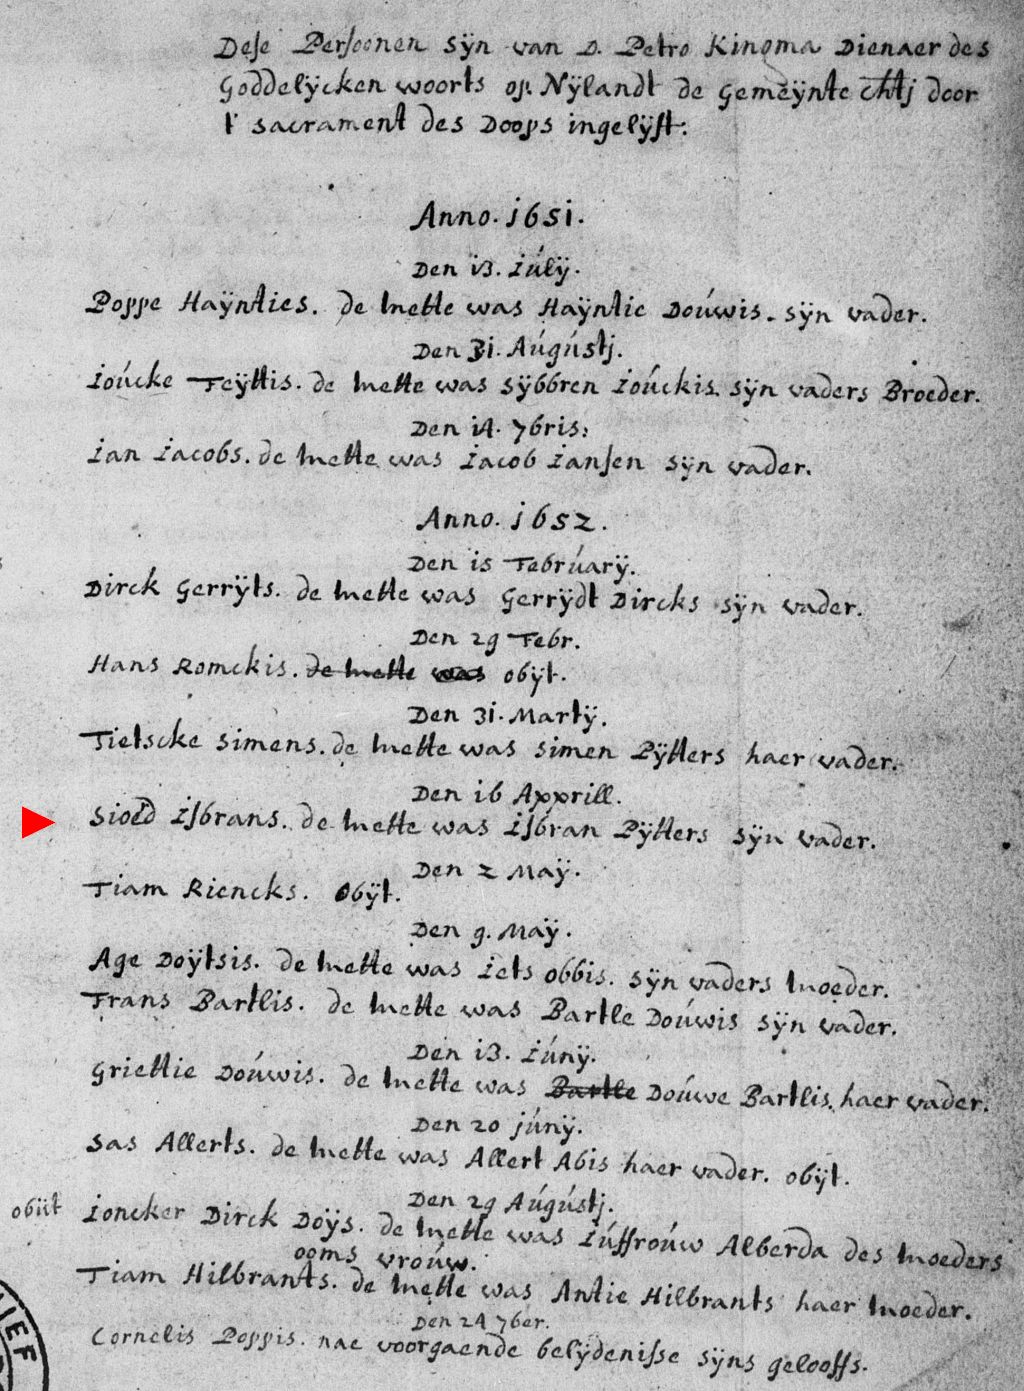 Dese Persoonen sÿn van D. Petro Kingma Dienaer des
Goddelÿcken woorts op Nÿlandt de Gemeÿnte Chtj door
t' sacrament des Doops ingelÿft:
Anno. 1651.
Den 13. Iúlÿ.
Poppe Haÿnties. de mette was Haÿntie Doúwis. sÿn vader.
Den 31. Aúgústj.
Ioúcke Feÿttis. de mette was sÿbbren Ioúckis. sÿn vaders Broeder.
Den 14. 7bris:
Ian Iacobs. de mette was Iacob Iansen sÿn vader.
Anno. 1652.
Den 15 Febrúarÿ.
Dirck Gerrÿts. de mette was Gerrÿdt Dircks sÿn vader.
Den 29 Febr.
Hans Romckis. de mette was obÿt.
Den 31. Martÿ.
Tietscke Simens. de mette was Simen Pÿtters haer vader.
Den 16 Apprill.
Sioed Isbrans. de mette was Isbran Pÿtters sÿn vader.
Den 2 Maÿ.
Tiam Riencks. obÿt.
Den 9. Maÿ.
Age Doÿtsis. de mette was Iets obbis. sÿn vaders moeder.
Frans Bartlis. de mette was Bartle Doúwis sÿn vader.
Den 13. Iúnÿ.
Griettie Doúwis. de mette was Bartle Doúwe Bartlis. haer vader.
Den 20 júnÿ.
Sas Allerts. de mette was Allert Abis haer vader. obÿt.
Den 29 Aúgústj.
obiit Ioncker Dirck Doÿs. de mette was Iúffroúw Alberda des moeders
ooms vroúw.
Tiam Hilbrants. de mette was Antie Hilbrants haer moeder.
Den 24 7ber.
Cornelis Poppis. nae voorgaende belÿdenisse sÿns gelooffs.
HIEF